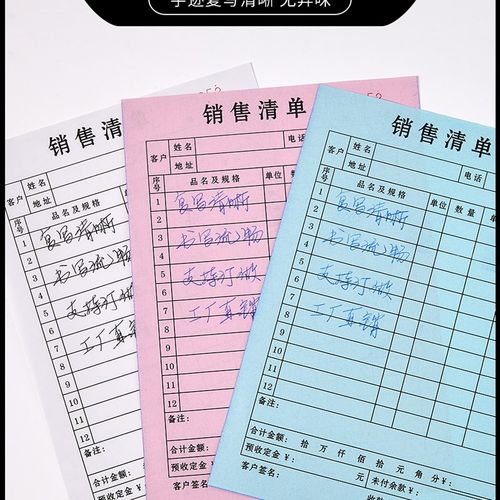 字迹复写清晰 无异味
销售清单
客户
姓名
地址
序号
品名及规格
1 复写清晰
2
3 书写流畅
4
5 支持订做
6
7 工厂直销
8
9
10
11
12
备注:
合计金额:
预收定金¥:
客户签名:
销售清单
客户
姓名
电话
地址
序号
品名及规格
单位
数
1 复写清晰
2
3 书写流畅
4
5 支持订做
6
7 工厂直销
8
9
10
11
12
备注:
合计金额:
预收定金¥:
客户签名:
销售清单
客户
姓名
地址
序号
品名及规格
单位
数量
单
1 复写清晰
2
3 书写流畅
4
5 支持订做
6
7 工厂直销
8
9
10
11
12
备注:
合计金额: 拾 万 仟 佰 拾 元 角 分¥:
预收定金¥: 元 未付余款¥:
客户签名: